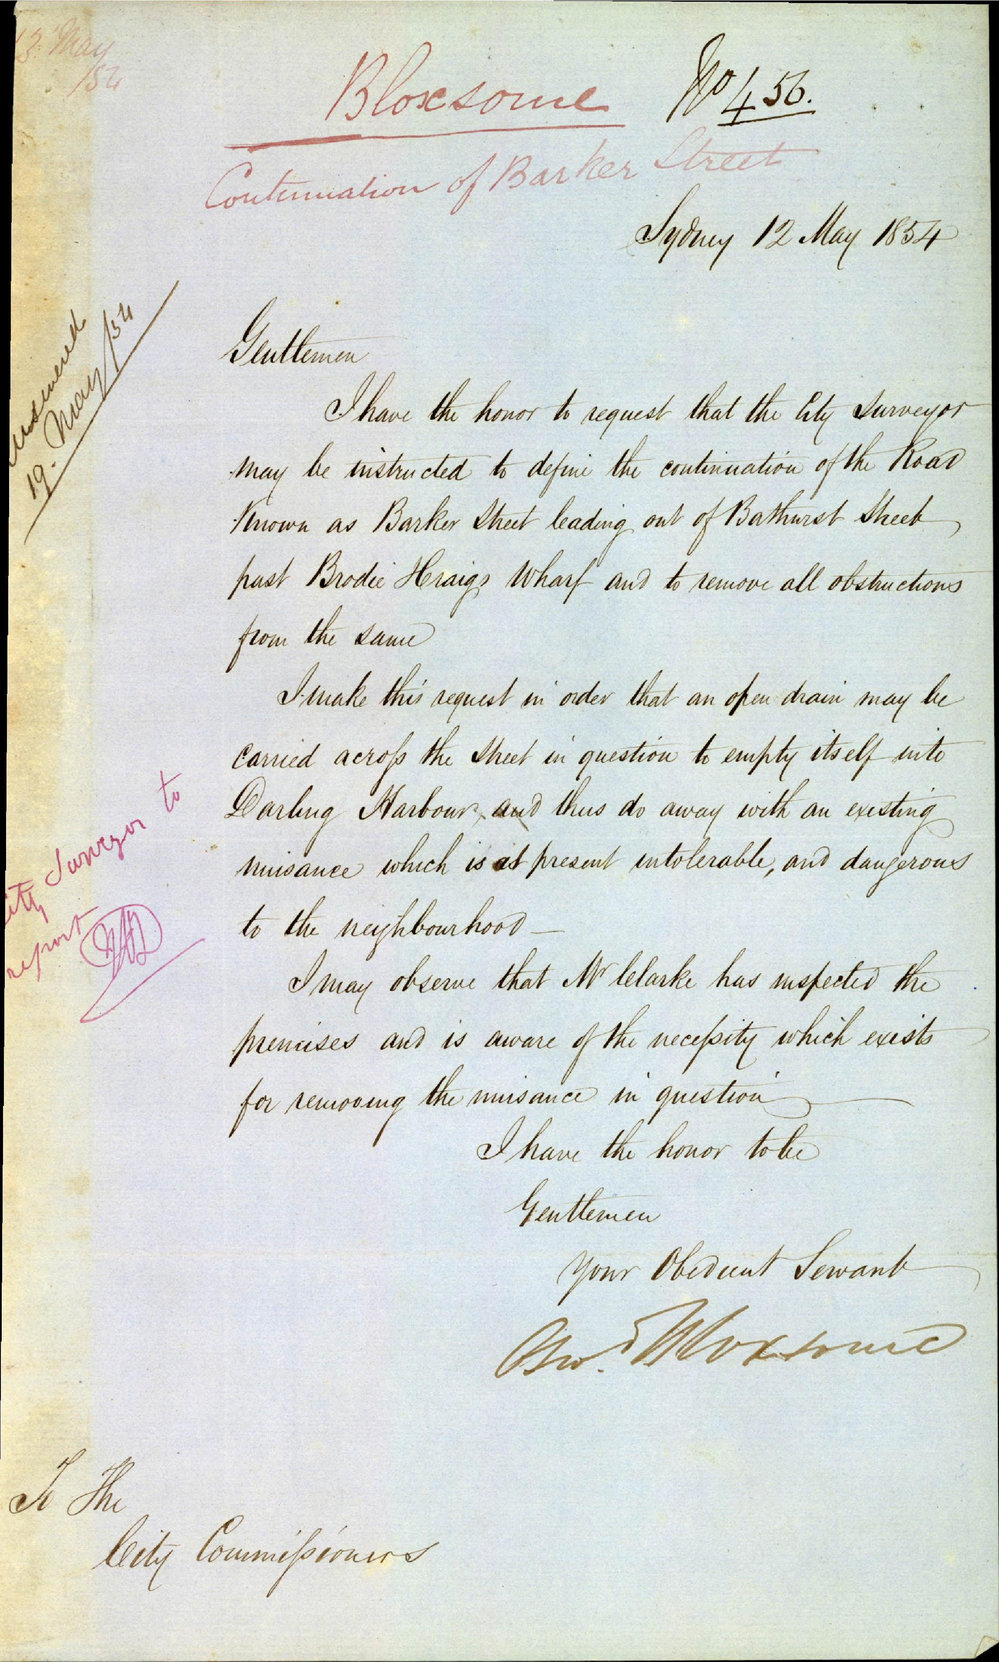 13 May
/54
Bloxsome No 456.
Continuation of Barker Street
Sydney 12 May 1854
Answered
19. May/54
Gentlemen
I have the honor to request that the City Surveyor
may be instructed to define the continuation of the Road
Known as Barker Street leading out of Bathurst Street
past Brodie &Craigs Wharf and to remove all obstructions
from the same
I make this request in order that an open drain may be
carried across the Street in question to empty itself into
Darling Harbour, and thus do away with an existing
nuisance which is at present intolerable, and dangerous
to the neighbourhood —
City Surveyor to
report
I may observe that Mr Clarke has inspected the
premises and is aware of the necessity which exists
for removing the nuisance in question
I have the honor to be
Gentlemen
Your Obedient Servant
Bloxsome
To The
City Commissioners